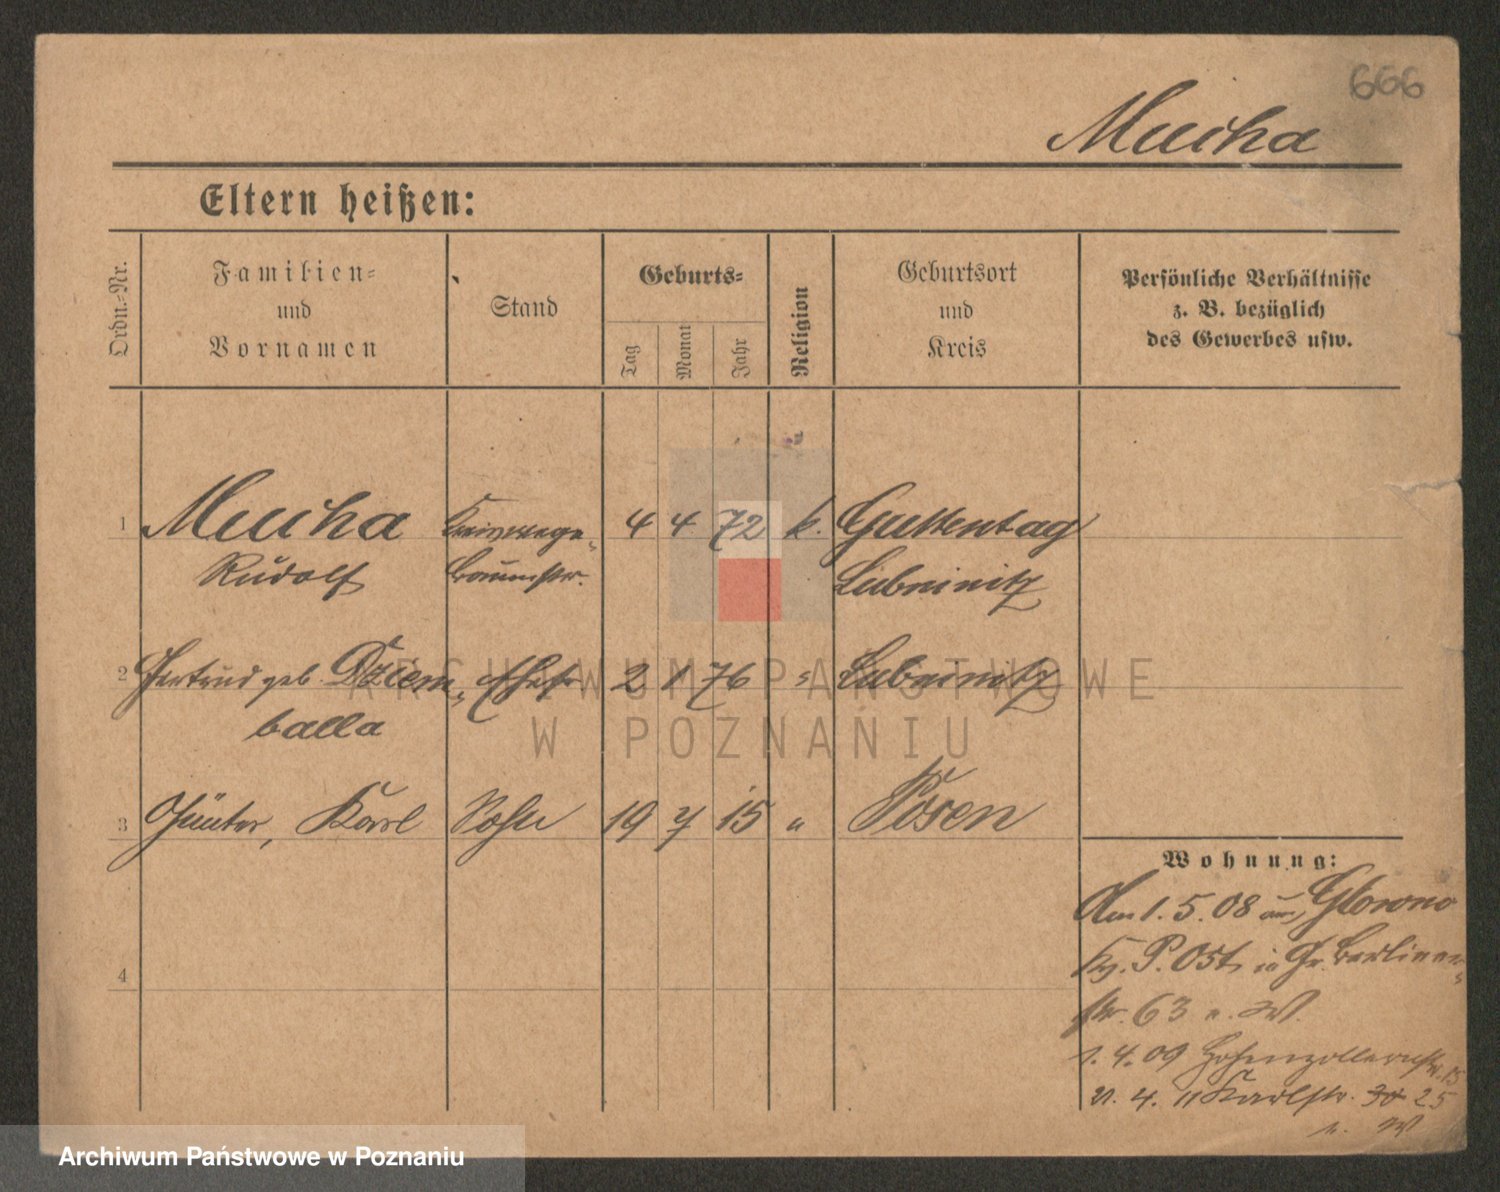 666
Mucha
Eltern heißen:
Ordn.=Nr.
Familien=
und
Vornamen
Stand
Geburts=
Tag
Monat
Jahr
Religion
Geburtsort
und
Kreis
Persönliche Verhältnisse
z. B. bezüglich
des Gewerbes usw.
1 Mucha 4 4 72 k. Guttentag
Rudolf Lubnin itz
2 Gertrud geb. Dziem= Ehefr 2 1 76 "
balla
3 Günter, Karl Sohn 19 7 15 " Posen
4
Wohnung:
Am 1.5.08 Glowno
Kr. P. Ost, in Gr. Berliner=
str. 63 W.
1.4.09 Hohenzollernstr. 15
4. 11 Karlstr. 30 25
W
ARCHIWUM PAŃSTWOWE
W POZNANIU
Archiwum Państwowe w Poznaniu